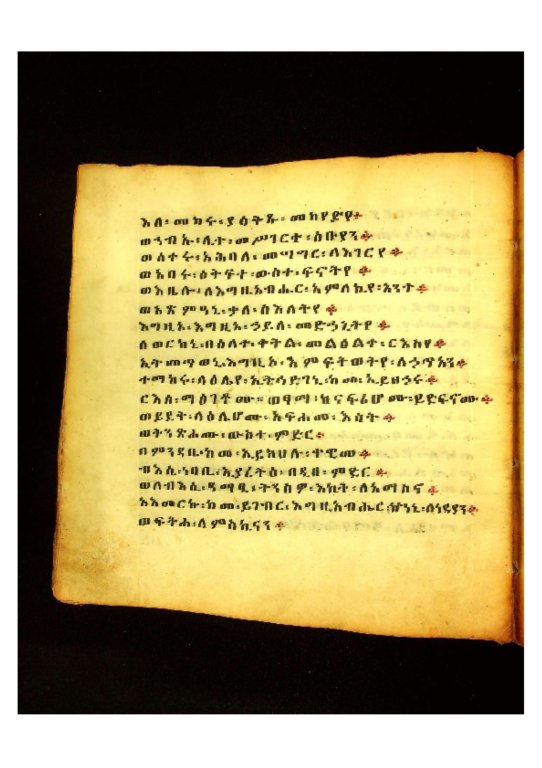 እለ፡ መከሩ፡ ያዕትጹ፡ መከየድየ።
ወኀብኡ፡ ሊተ፡ መሥገርተ፡ ዕቡያን።
ወሰተሩ፡ አሕባለ፡ መሣግር፡ ለእገርየ።
ወአበሩ፡ ዕቅፍተ፡ ውስተ፡ ፍኖትየ።
ወእቤሎ፡ ለእግዚአብሔር፡ አምላኪየ፡ አንተ።
ወአጽምዓኒ፡ ቃለ፡ ስእለትየ።
እግዚኦ፡ እግዚኦ፡ ኃይለ፡ መድኃኒትየ።
ሰወርከኒ፡ በዕለተ፡ ቀትል፡ መልዕልተ፡ ርእስየ።
ኢትመጥወኒ፡ እግዚኦ፡ እምፍትወትየ፡ ለኃጥአን።
ተማከሩ፡ ላዕሌየ፡ ኢትኅድገኒ፡ ከመ፡ ኢይዝኃሩ።
ርእሰ፡ ማዕገቶሙ። ወፃማ፡ ከናፍሪሆሙ፡ ይድፍኖሙ።
ወይደቅ፡ ላዕሌሆሙ፡ አፍሐመ፡ እሳት።
ወትንጽሖሙ፡ ውስተ፡ ምድር።
በምንዳቤ፡ ከመ፡ ኢይክሀሉ፡ ቀዊመ።
ብእሲ፡ ነባቢ፡ ኢያረትዕ፡ በዲበ፡ ምድር።
ወለብእሲ፡ ዓማፂ፡ ትንዕዎ፡ እከት፡ ለአማስኖ።
አእመርኩ፡ ከመ፡ ይገብር፡ እግዚአብሔር፡ ኵነኔ፡ ለነዳያን።
ወፍትሐ፡ ለምስኪናን።